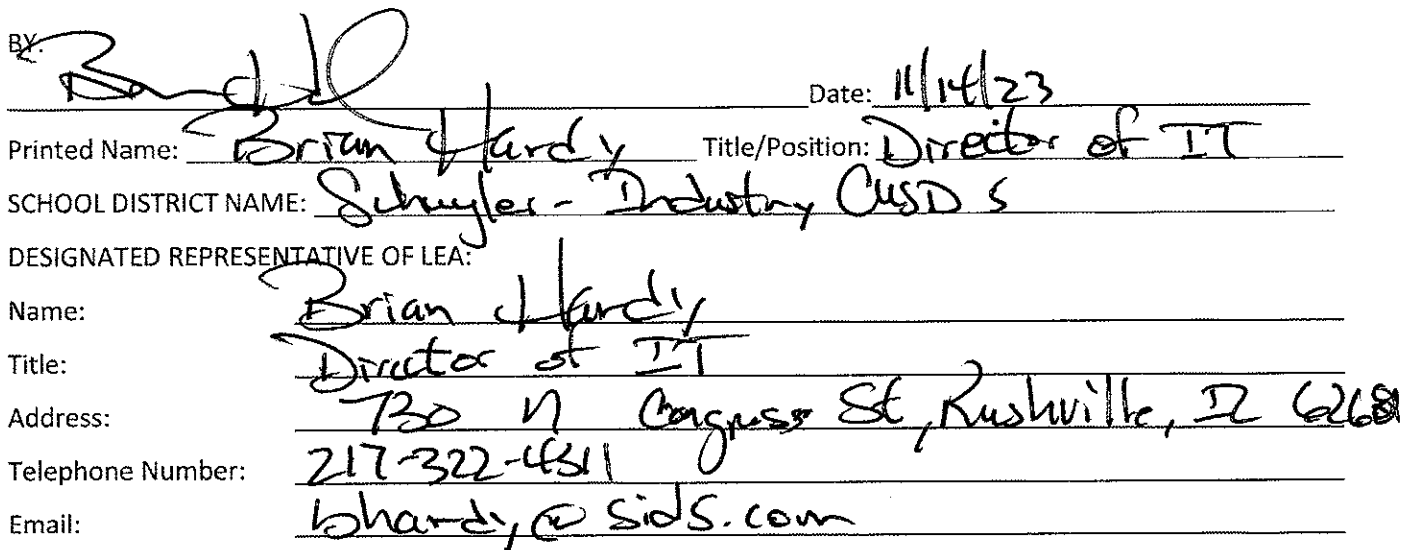 BY:
Date: 11/14/23
Printed Name: Brian Hardy Title/Position: Director of IT
SCHOOL DISTRICT NAME: Schuyler-Industry CUSD 5
DESIGNATED REPRESENTATIVE OF LEA:
Name: Brian Hardy
Title: Director of IT
Address: 730 N Congress St, Rushville, IL 62681
Telephone Number: 217-322-4311
Email: bhardy@sid5.com